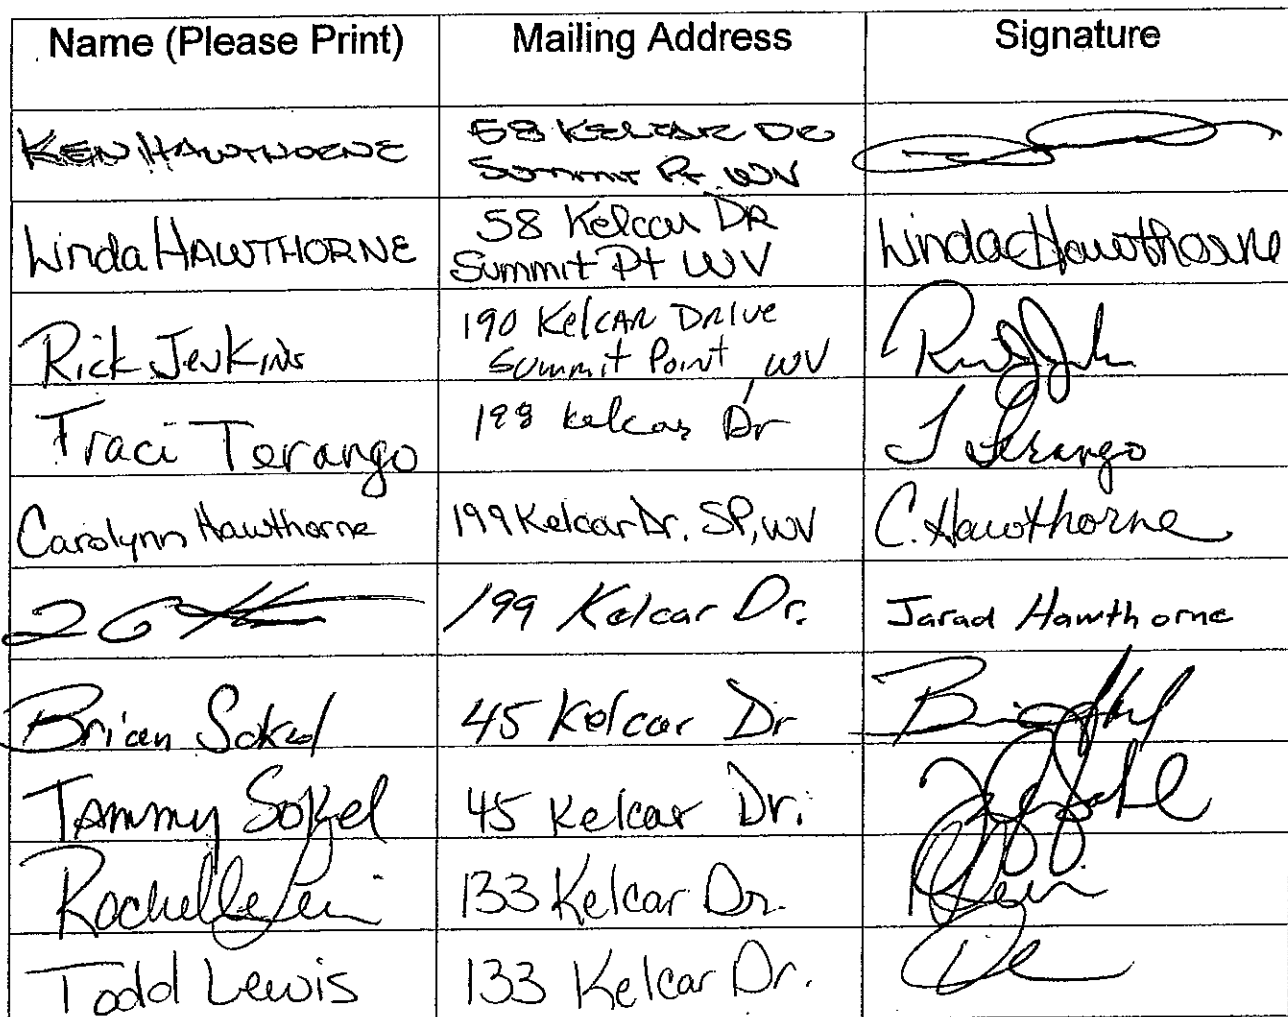 Name (Please Print) Mailing Address Signature
KEN HAWTHORNE 58 KELCAR DR
Summit Pt. WV
Linda HAWTHORNE 58 Kelcar DR Linda Hawthorne
Summit Pt WV
Rick Jenkins 190 Kelcar Drive
Summit Point, WV
Traci Terango 198 Kelcar Dr T Terango
Carolynn Hawthorne 199 Kelcar Dr. SP, WV C. Hawthorne
199 Kelcar Dr. Jarad Hawthorne
Brian Sokel 45 Kelcar Dr
Tammy Sokel 45 Kelcar Dr.
Rochelle 133 Kelcar Dr.
Todd Lewis 133 Kelcar Dr.